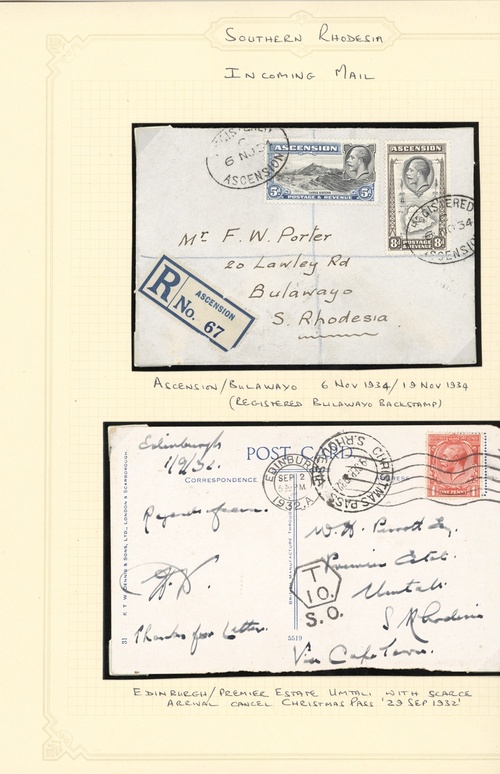 SOUTHERN RHODESIA
INCOMING MAIL
REGISTERED
6 NO 34
ASCENSION
ASCENSION
5d
5d
POSTAGE & REVENUE
ASCENSION
8d
POSTAGE & REVENUE
8d
REGISTERED
34
ASCENSION
Mr F. W. Porter
20 Lawley Rd
Bulawayo
S. Rhodesia
R
ASCENSION
No. 67
ASCENSION/BULAWAYO 6 NOV 1934/19 NOV 1934
(REGISTERED BULAWAYO BACKSTAMP)
Edinburgh
1/9/32.
POST CARD
CORRESPONDENCE
EDINBURGH
SEP 2
1932
CHRISTMAS PASS
S. RHODESIA
ONE PENNY
Thanks for letter.
W. H. Perrott Esq.
Premier Estate
Umtali
S Rhodesia
Via Cape Town.
T
10.
S.O.
31
E. T. W. DENNIS & SONS, LTD., LONDON & SCARBOROUGH.
5519
EDINBURGH/PREMIER ESTATE UMTALI WITH SCARCE
ARRIVAL CANCEL CHRISTMAS PASS '29 SEP 1932'